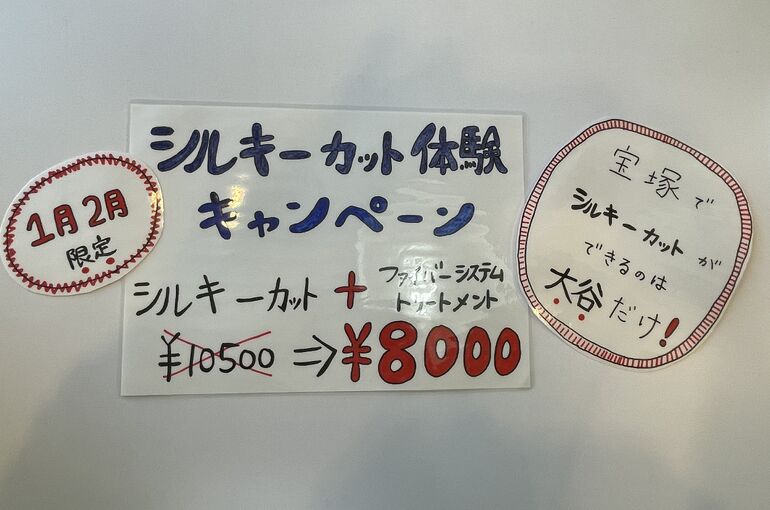 シルキーカット体験
キャンペーン
シルキーカット + ファイバーシステム
トリートメント
¥10500 ⇒ ¥8000
1月2月
限定
宝塚で
シルキーカットが
できるのは
大谷だけ!